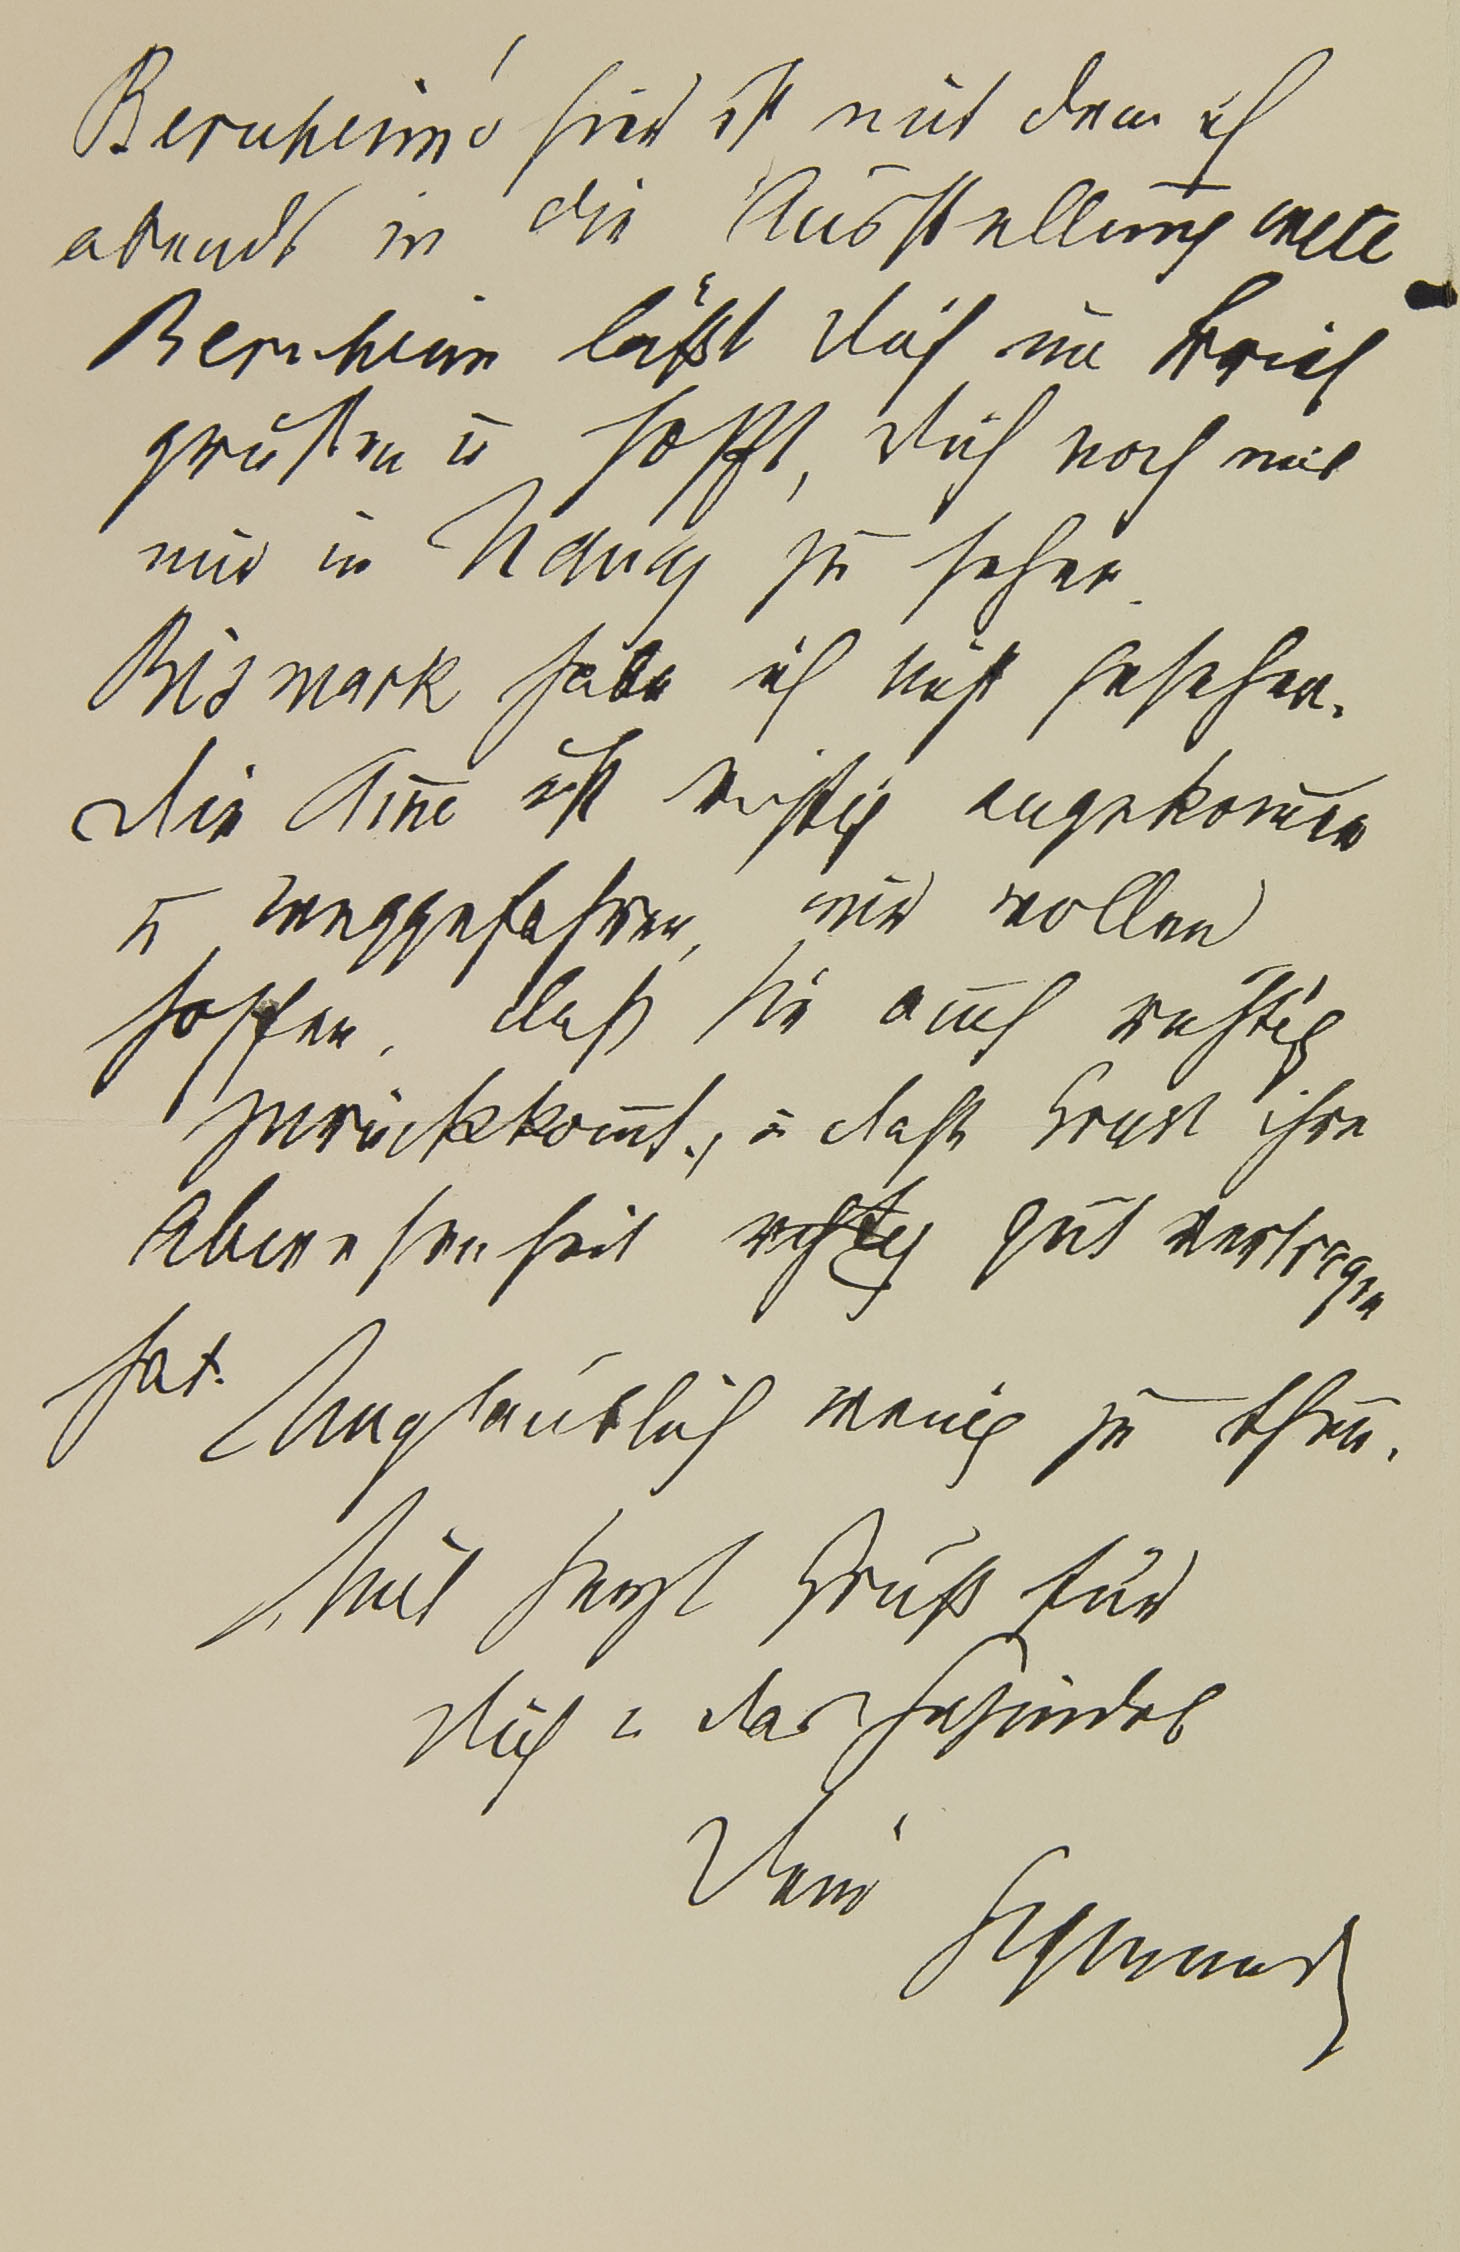 Bernheim's hier ist mit dem ich
abends in die Ausstellung
Bernheim läßt Dich im Brief
grüßen u hofft, Dich noch mit
mir in Nancy zu sehen.
Bismark habe ich nicht gesehen.
Die ist richtig angekom̄en
u weggefahren, wir wollen
hoffen, daß sie auch richtig
zurückkom̄t., u daß Ernst ihre
Abwesenheit gut vertragen
hat. Unglaublich wenig zu thun.
Mit herzl Gruß für
Dich u das Gesindel
Dein Sigmund